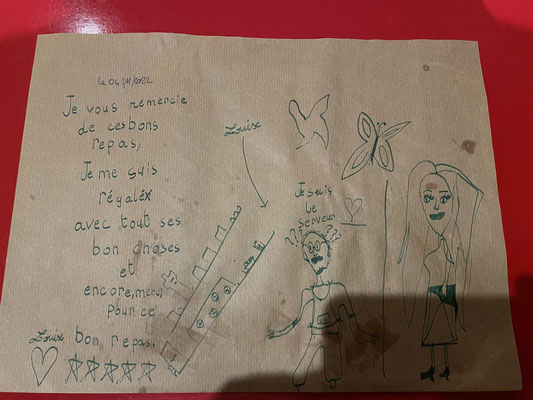 Le 04/11/2022
Je vous remercie
de ces bons
repas,
Je me suis
régaléx
avec tout ses
bon choses
et
encore,merci
pour ce
bon repas.
Louise
Louise
Je suis
le
serveur
?? ??